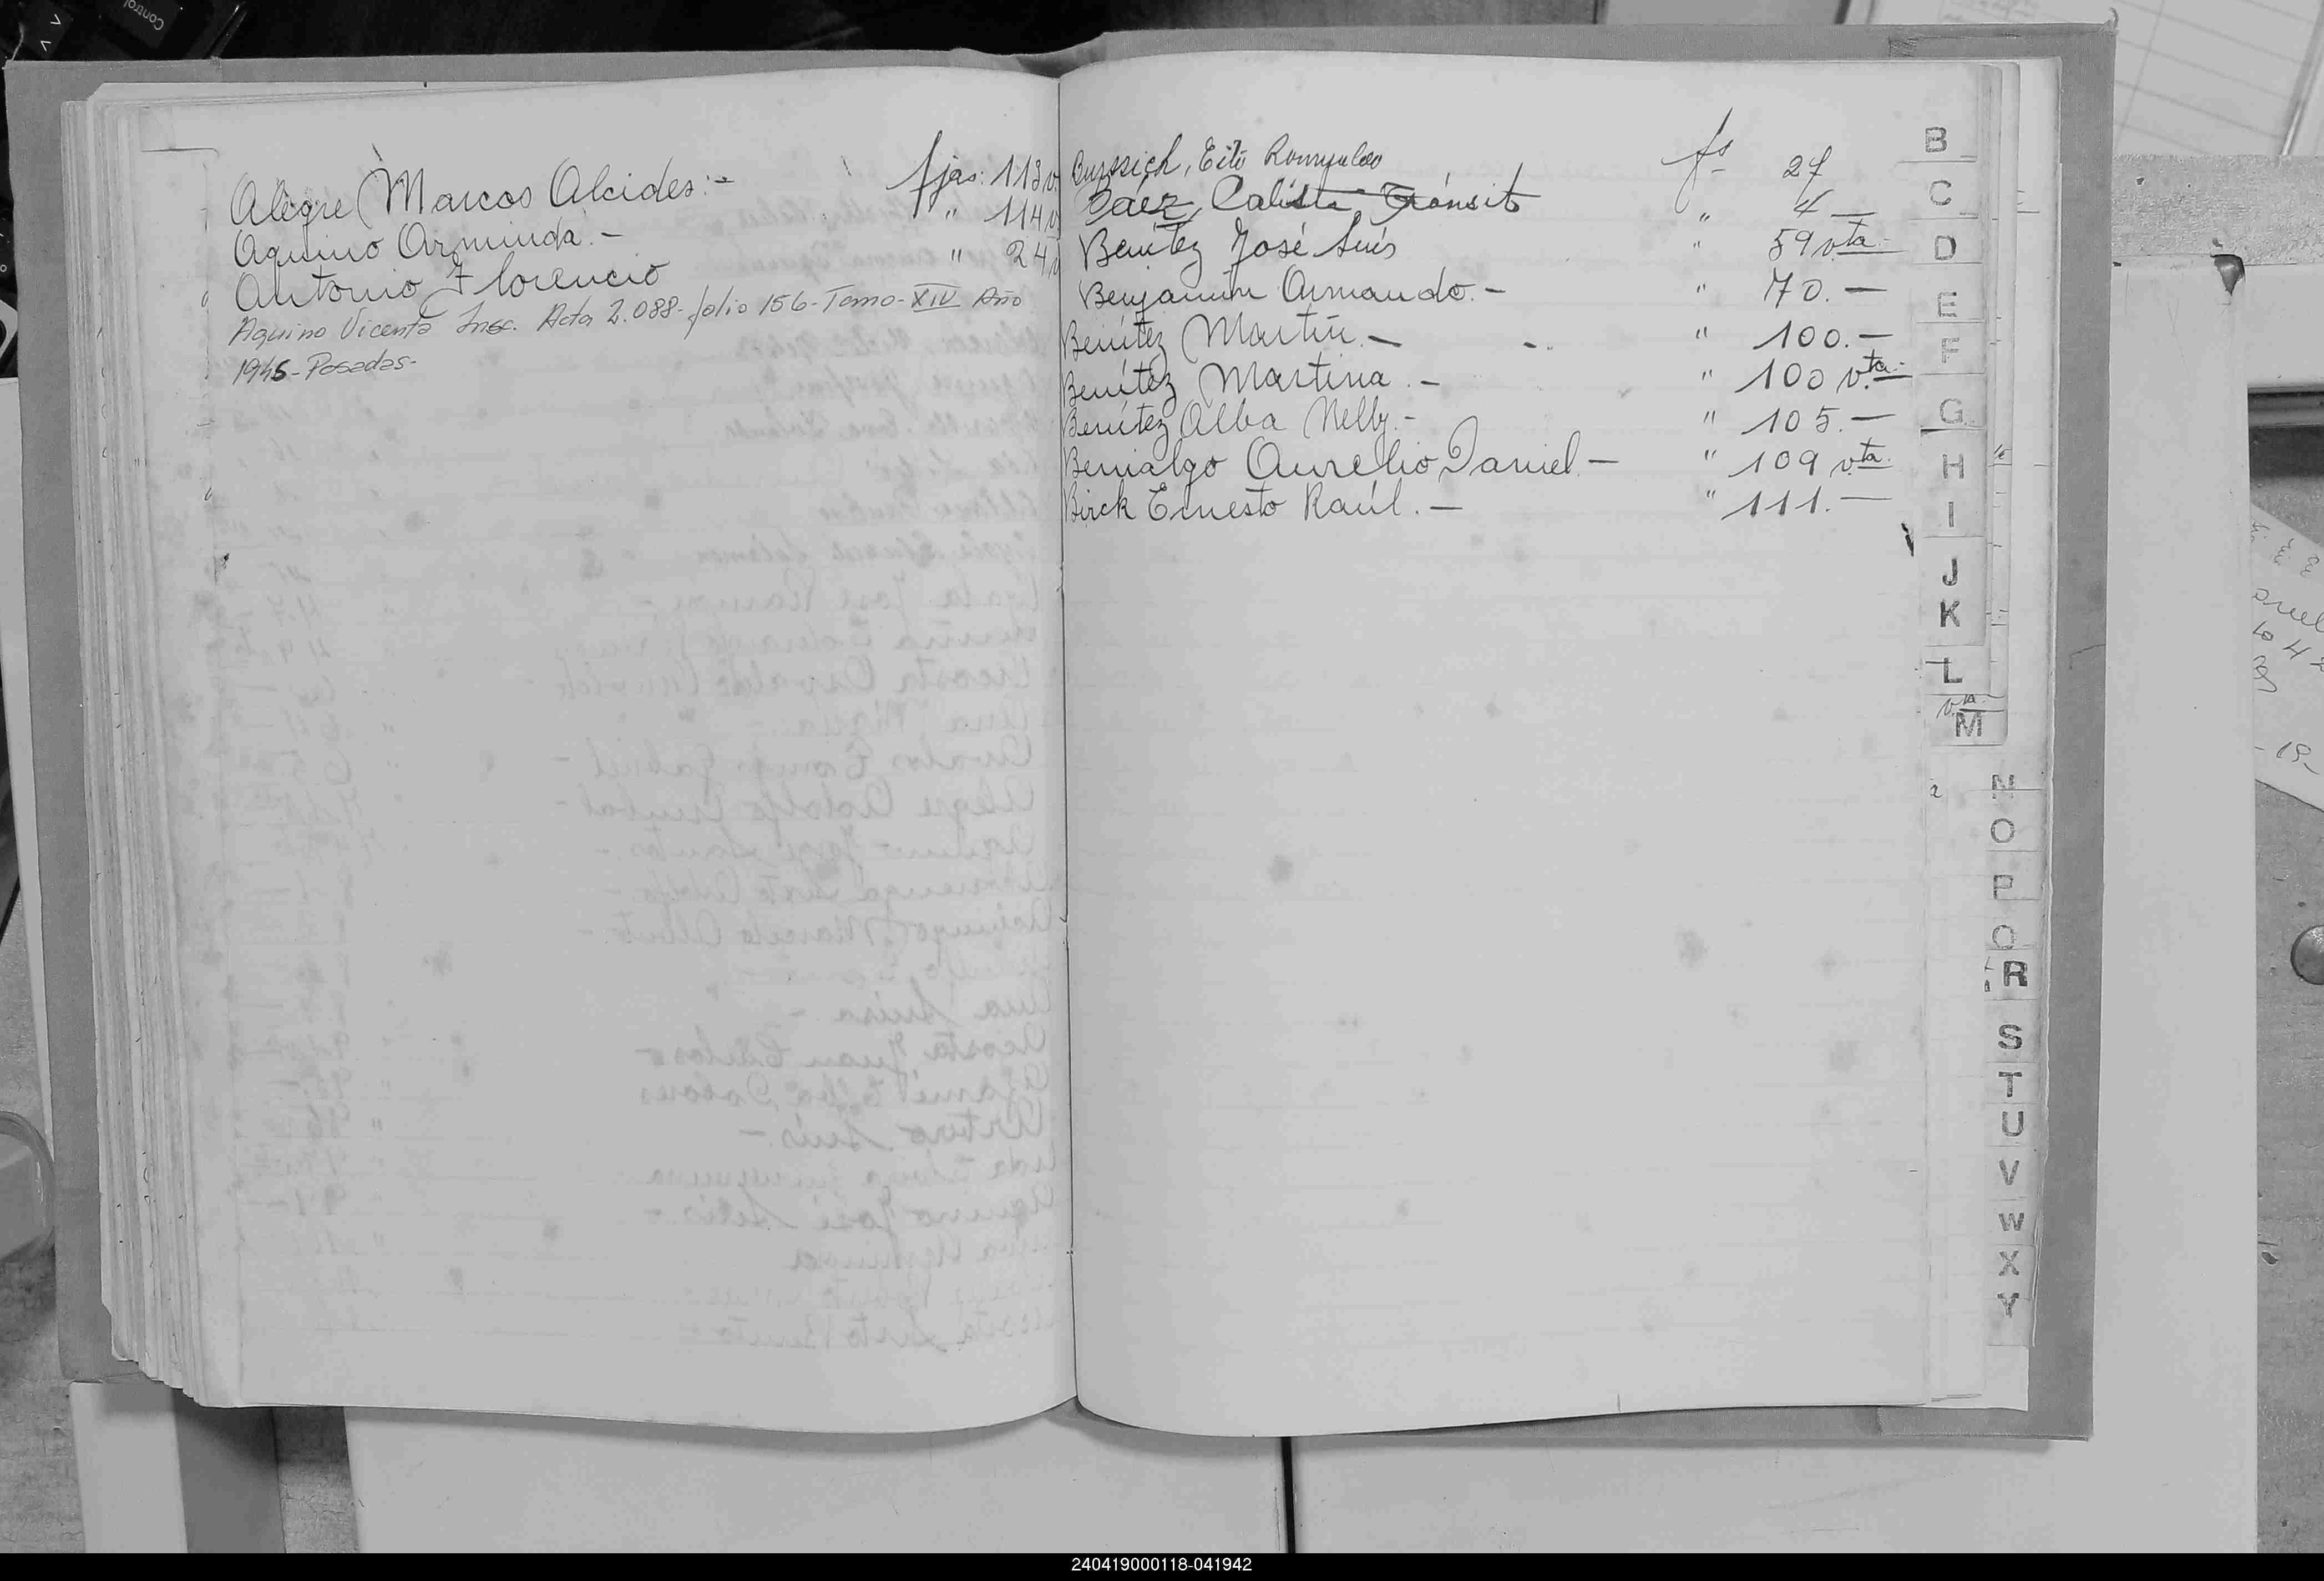 Alegre Marcos Alcides.- fjas: 113 v.
Aquino Arminda.- " 114 v
Antonio Florencio " 24 v
Aquino Vicenta Insc. Acta 2.088-folio 156-Tomo-XIV Año
1945-Posadas-
Romualdo fs 27
Báez, Calista Tránsito " 4 —
Benítez José Luis " 59 vta.
Benjamin Armando.- " 70.—
Benítez Martín.- " 100.—
Benítez Martina.- " 100 vta.
Benítez Alba Nelly.- " 105.—
Benialgo Aurelio Daniel.- " 109 vta.
Birck Ernesto Raúl.— " 111.—
B
C
D
E
F
G
H
I
J
K
L
M
N
O
P
Q
R
S
T
U
V
W
X
Y
Control
240419000118-041942